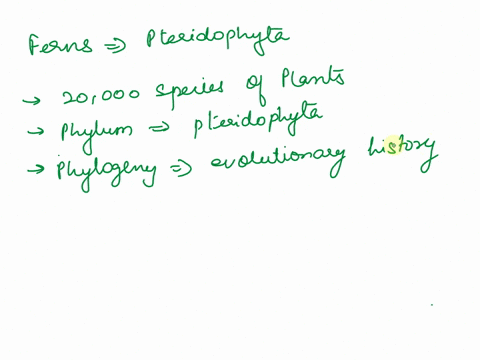 Ferns ⇒ Pteridophyta
→ 20,000 species of Plants
→ Phylum ⇒ pteridophyta
→ Phylogeny ⇒ evolutionary history